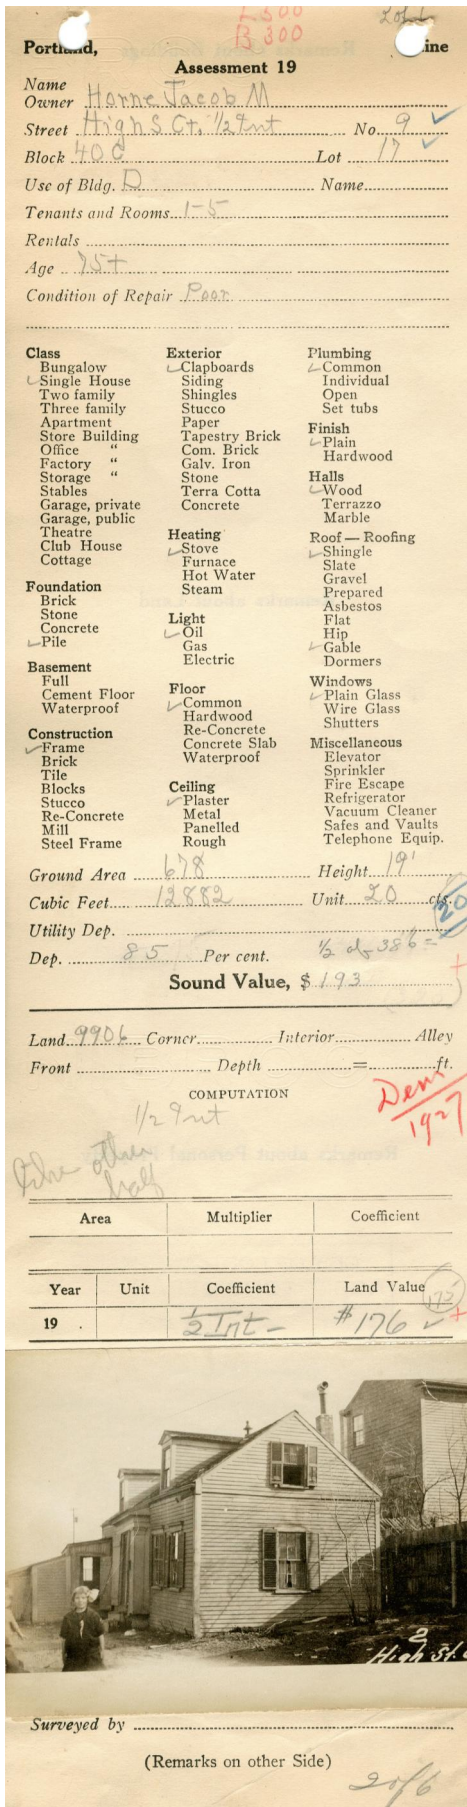 L 300
B 300
Portland, ine
Assessment 19
Name
Owner Horne Jacob M
Street High S Ct. 1/2 Int No. 9
Block 40C Lot 17
Use of Bldg. D Name
Tenants and Rooms 1-5
Rentals
Age 75+
Condition of Repair Poor
Class
Bungalow
Single House
Two family
Three family
Apartment
Store Building
Office "
Factory "
Storage "
Stables
Garage, private
Garage, public
Theatre
Club House
Cottage
Foundation
Brick
Stone
Concrete
Pile
Basement
Full
Cement Floor
Waterproof
Construction
Frame
Brick
Tile
Blocks
Stucco
Re-Concrete
Mill
Steel Frame
Exterior
Clapboards
Siding
Shingles
Stucco
Paper
Tapestry Brick
Com. Brick
Galv. Iron
Stone
Terra Cotta
Concrete
Heating
Stove
Furnace
Hot Water
Steam
Light
Oil
Gas
Electric
Floor
Common
Hardwood
Re-Concrete
Concrete Slab
Waterproof
Ceiling
Plaster
Metal
Panelled
Rough
Plumbing
Common
Individual
Open
Set tubs
Finish
Plain
Hardwood
Halls
Wood
Terrazzo
Marble
Roof — Roofing
Shingle
Slate
Gravel
Prepared
Asbestos
Flat
Hip
Gable
Dormers
Windows
Plain Glass
Wire Glass
Shutters
Miscellaneous
Elevator
Sprinkler
Fire Escape
Refrigerator
Vacuum Cleaner
Safes and Vaults
Telephone Equip.
Ground Area 678 Height 19'
Cubic Feet 12882 Unit 20 cts. 20
Utility Dep.
Dep. 85 Per cent. 1/2 of 386=
Sound Value, $ 193
Land 9906 Corner Interior Alley
Front Depth = ft.
COMPUTATION
Dem
1927
1/2 Int
other
half
Area Multiplier Coefficient
Year Unit Coefficient Land Value 175
19 . 1/2 Int- $176
2
High St.
Surveyed by
(Remarks on other Side)
2 of 6